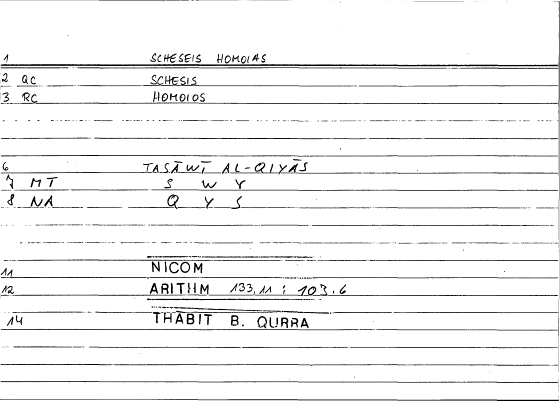 1 SCHESEIS HOMOIAS
2 QC SCHESIS
3 RC HOMOIOS
6 TASĀWĪ AL-QIYĀS
7 MT S W Y
8 NA Q Y S
11 NICOM
12 ARITHM 133,11 : 103.6
14 THĀBIT B. QURRA